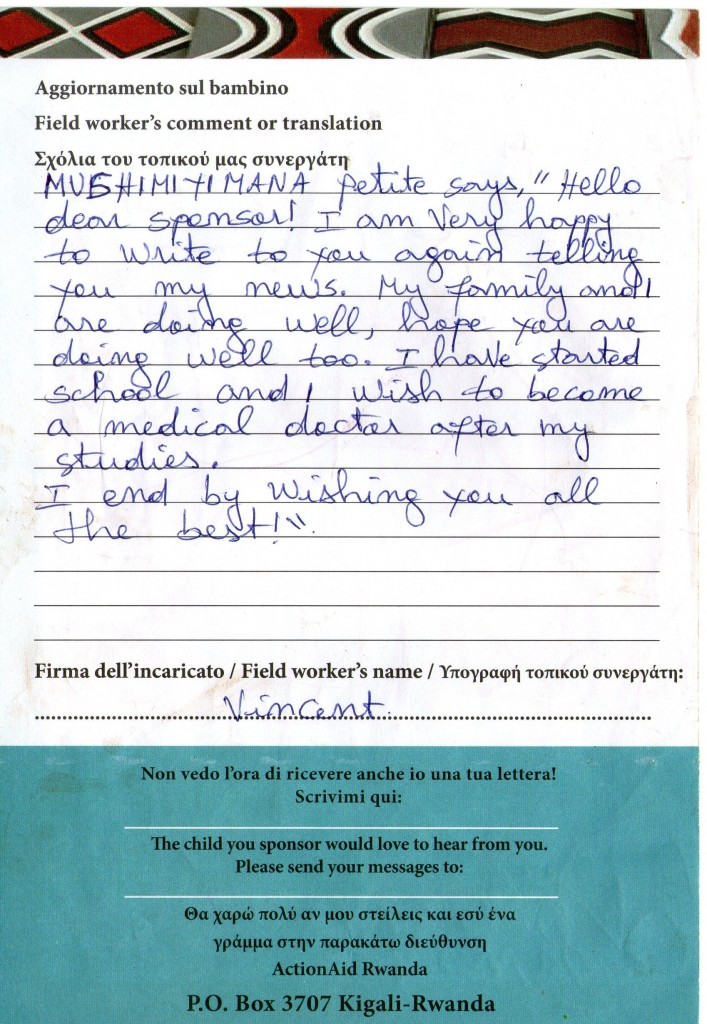 Aggiornamento sul bambino
Field worker's comment or translation
Σχόλια του τοπικού μας συνεργάτη
MUSHIMIYIMANA petite says, "Hello
dear sponsor! I am Very happy
to write to you again telling
you my news. My family and I
are doing well, hope you are
doing well too. I have started
school and I wish to become
a medical doctor after my
studies.
I end by wishing you all
the best!".
Firma dell'incaricato / Field worker's name / Υπογραφή τοπικού συνεργάτη:
Vincent
Non vedo l'ora di ricevere anche io una tua lettera!
Scrivimi qui:
The child you sponsor would love to hear from you.
Please send your messages to:
Θα χαρώ πολύ αν μου στείλεις και εσύ ένα
γράμμα στην παρακάτω διεύθυνση
ActionAid Rwanda
P.O. Box 3707 Kigali-Rwanda